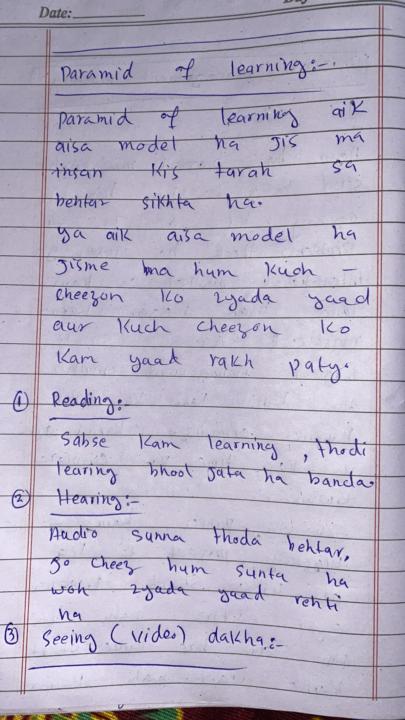 Date:
Paramid of learning:-
Paramid of learning aik
aisa model ha jis ma
insan kis tarah sa
behtar sikhta ha.
ya aik aisa model ha
Jisme ma hum kuch -
cheezon ko zyada yaad
aur kuch cheezon ko
kam yaad rakh paty.
① Reading:-
Sabse kam learning, thodi
learing bhool jata ha banda.
② Hearing:-
Audio sunna thoda behtar,
jo cheez hum sunta ha
woh zyada yaad rehti
ha
③ Seeing (video) dakha:-